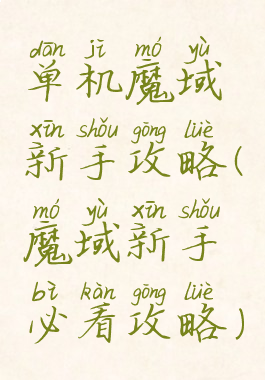 dān jī mó yù
单机魔域
xīn shǒu gōng lüè
新手攻略(
mó yù xīn shǒu
魔域新手
bì kàn gōng lüè
必看攻略)